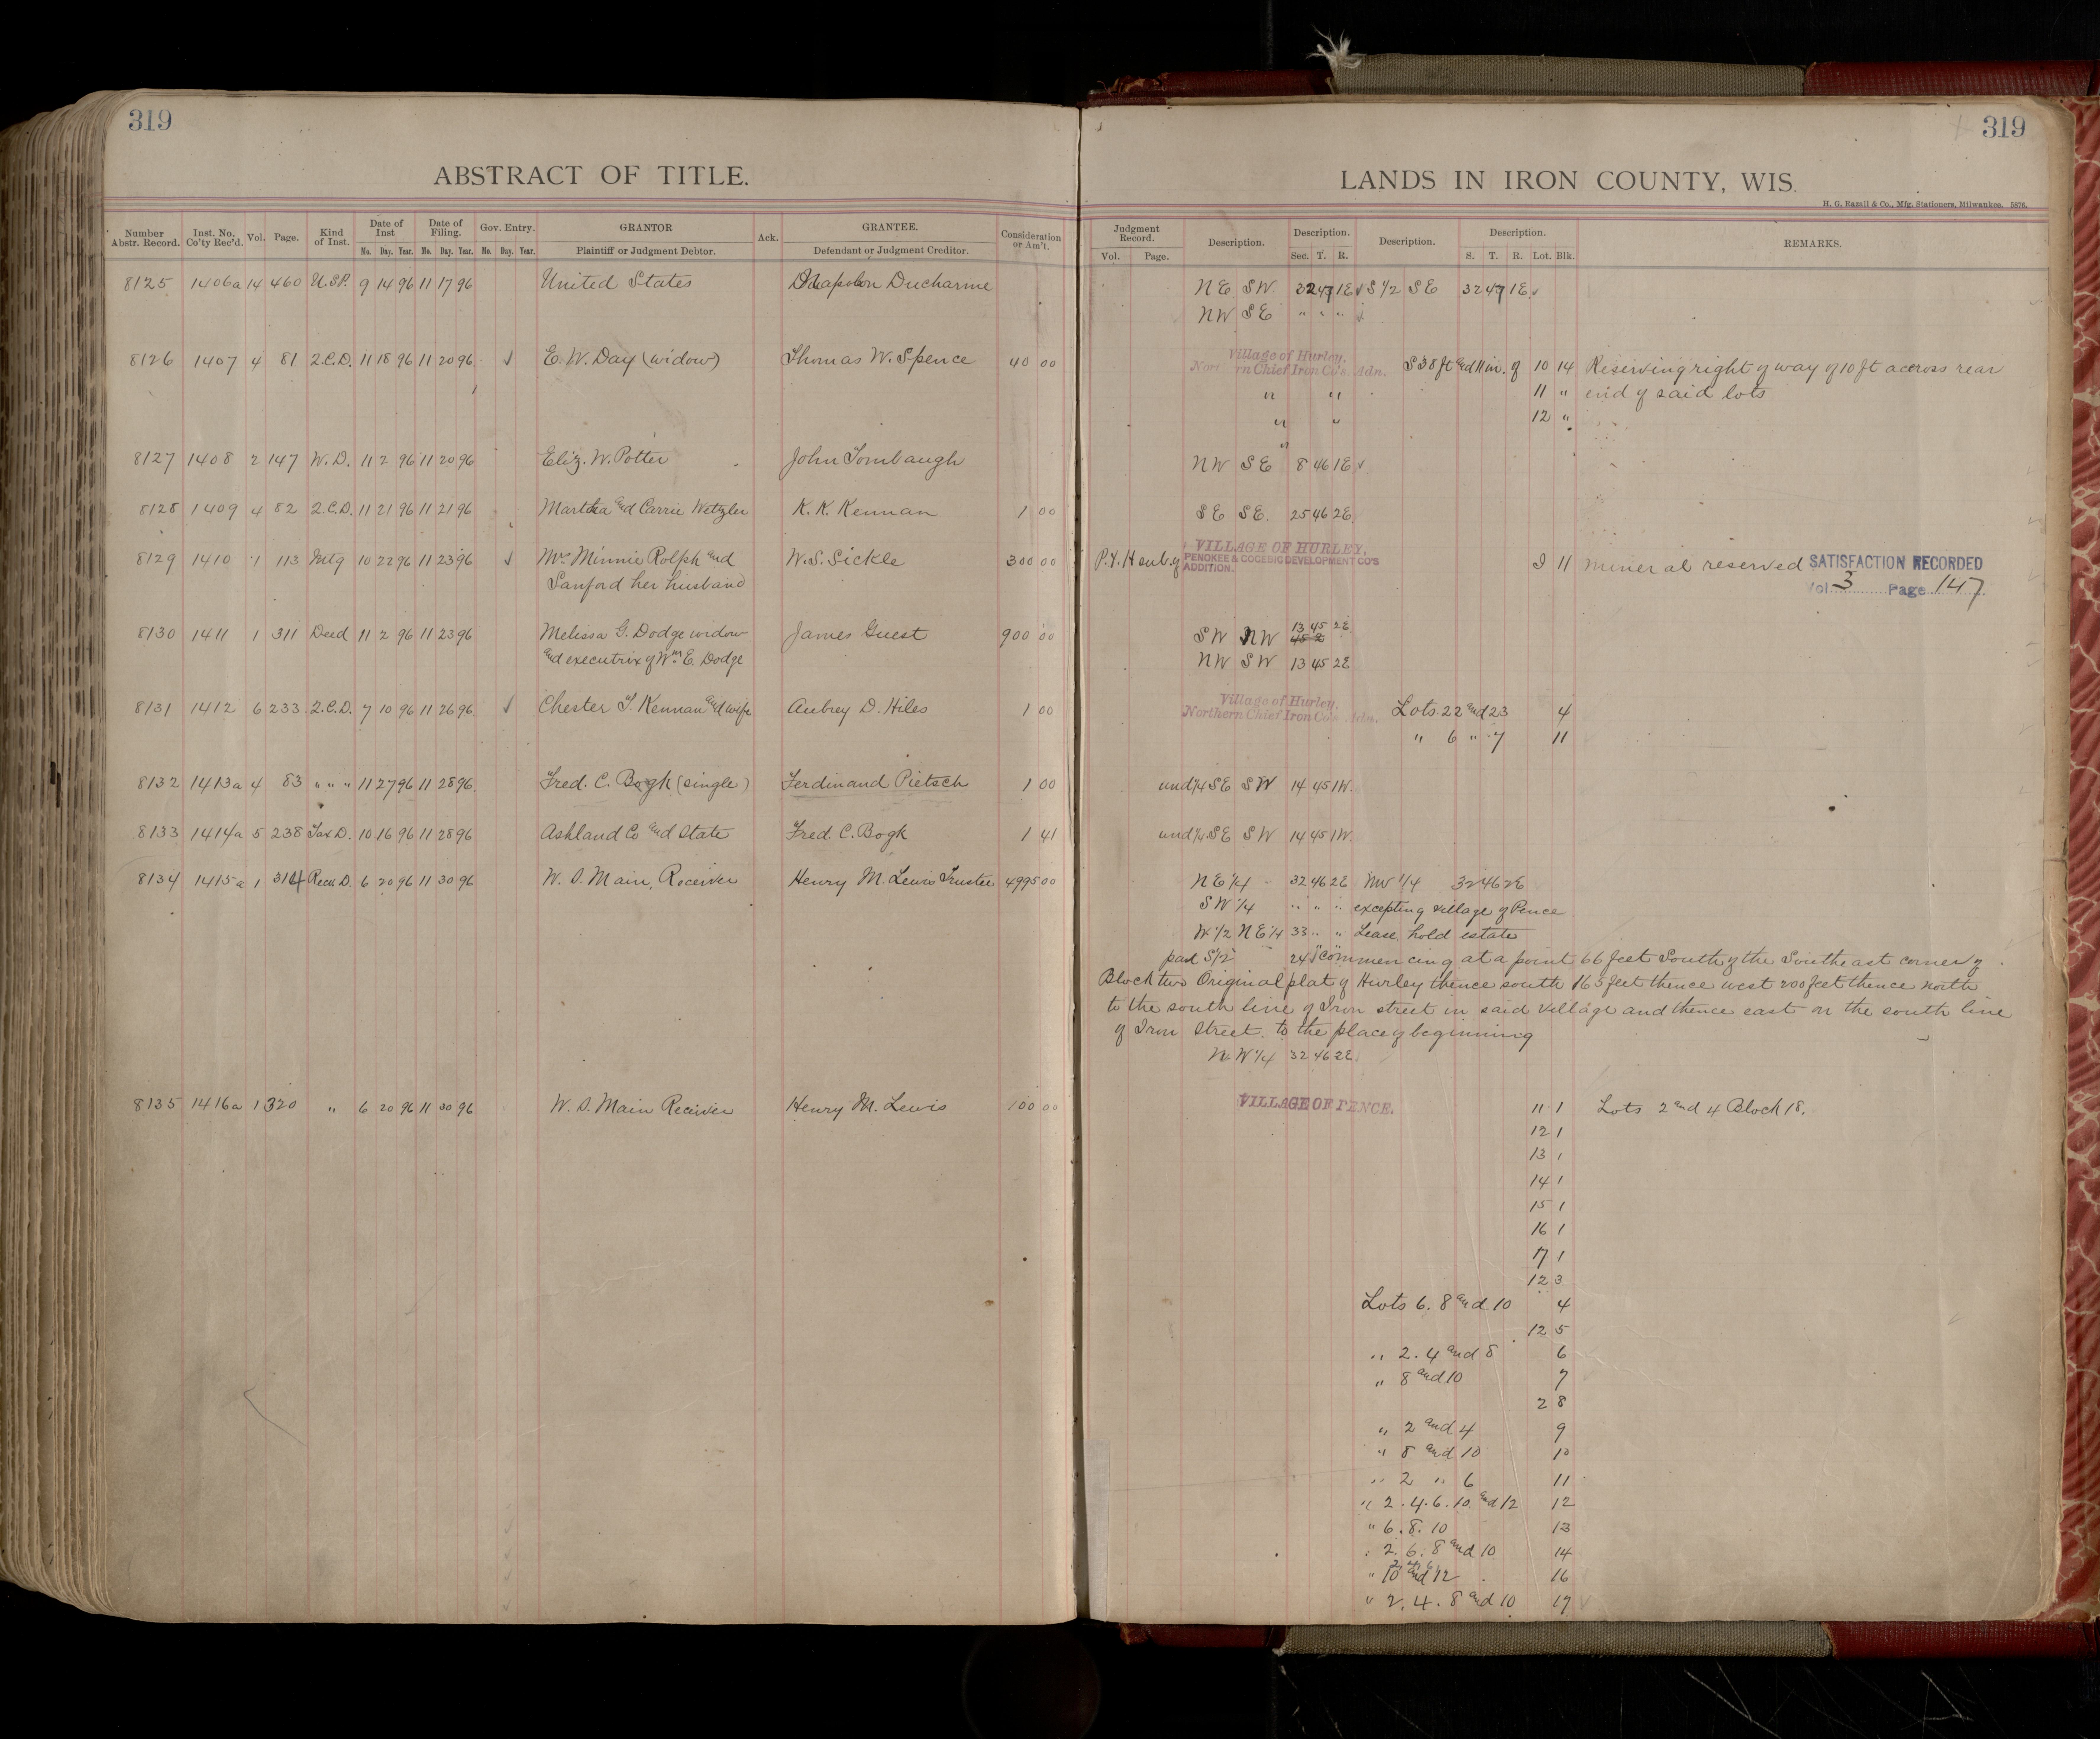 319
ABSTRACT OF TITLE.
Number Abstr. Record. Inst. No. Co'ty Rec'd. Vol. Page. Kind of Inst. Date of Inst Mo. Day. Year. Date of Filing. Mo. Day. Year. Gov. Entry. Mo. Day. Year. GRANTOR Plaintiff or Judgment Debtor. Ack. GRANTEE. Defendant or Judgment Creditor. Consideration or Am't.
8125 1406a 14 460 U.SP. 9 14 96 11 17 96 United States Napoleon Ducharme
8126 1407 4 81 2.C.D. 11 18 96 11 20 96 E. W. Day (widow) Thomas W. Spence 40 00
8127 1408 2 147 W. D. 11 2 96 11 20 96 Eliz. W. Potter John Tombaugh
8128 1409 4 82 2.C.D. 11 21 96 11 21 96 Martha and Carrie Wetzler K. K. Kennan 1 00
8129 1410 1 113 Mtg 10 22 96 11 23 96 Mrs Minnie Rolph and W. S. Sickle 300 00
Sanford her husband
8130 1411 1 311 Deed 11 2 96 11 23 96 Melissa G. Dodge widow James Guest 900 00
and executrix of Wm E. Dodge
8131 1412 6 233 2.C.D. 7 10 96 11 26 96 Chester T. Kennan and wife Aubrey D. Hiles 1 00
8132 1413a 4 83 " " " 11 27 96 11 28 96 Fred. C. Bogk (single) Ferdinand Pietsch 1 00
8133 1414a 5 238 Tax D. 10 16 96 11 28 96 Ashland Co and State Fred. C. Bogk 1 41
8134 1415a 1 314 Rec. D. 6 20 96 11 30 96 W. S. Main, Receiver Henry M. Lewis Trustee 4995 00
8135 1416a 1 320 " 6 20 96 11 30 96 W. S. Main Receiver Henry M. Lewis 100 00
319
LANDS IN IRON COUNTY, WIS.
H. G. Razall & Co., Mfg. Stationers, Milwaukee. 5876.
Judgment Record. Vol. Page. Description. Description. Sec. T. R. Description. Description. S. T. R. Lot. Blk. REMARKS.
NE SW 32 47 1E S 1/2 SE 32 47 1E
NW SE " " "
Village of Hurley,
Northern Chief Iron Co's. Adn. S 38 ft and 11 in. of 10 14 Reserving right of way of 10 ft accross rear
" " 11 " end of said lots
" " 12 "
"
NW SE 8 46 1E
SE SE. 25 46 2E
VILLAGE OF HURLEY,
PENOKEE & GOGEBIC DEVELOPMENT CO'S
ADDITION. 9 11 mineral reserved SATISFACTION RECORDED
Vol. 3 Page 147
13 45 2E
SW NW 45 2
NW SW 13 45 2E
Village of Hurley,
Northern Chief Iron Co's. Adn. Lots 22 and 23 4
" 6 " 7 11
und 1/4 SE SW 14 45 1W.
und 1/4 SE SW 14 45 1W.
NE 1/4 32 46 2E NW 1/4 32 46 2E
SW 1/4 " " " excepting village of Pence
W 1/2 NE 1/4 33 " " Lease hold estate
part S 1/2 24 " " Commencing at a point 66 feet South of the Southeast corner of
Block two Original plat of Hurley thence south 165 feet thence west 200 feet thence north
to the south line of Iron street in said village and thence east on the south line
of Iron Street. to the place of beginning
NW 1/4 32 46 2E.
VILLAGE OF PENCE. 11 1 Lots 2 and 4 Block 18.
12 1
13 1
14 1
15 1
16 1
17 1
12 3
Lots 6. 8 and 10 4
12 5
" 2. 4 and 8 6
" 8 and 10 7
2 8
" 2 and 4 9
" 8 and 10 10
" 2 " 6 11
" 2. 4. 6. 10 and 12 12
" 6. 8. 10 13
" 2. 6. 8 and 10 14
" 10 and 12 16
" 2. 4. 8 and 10 17